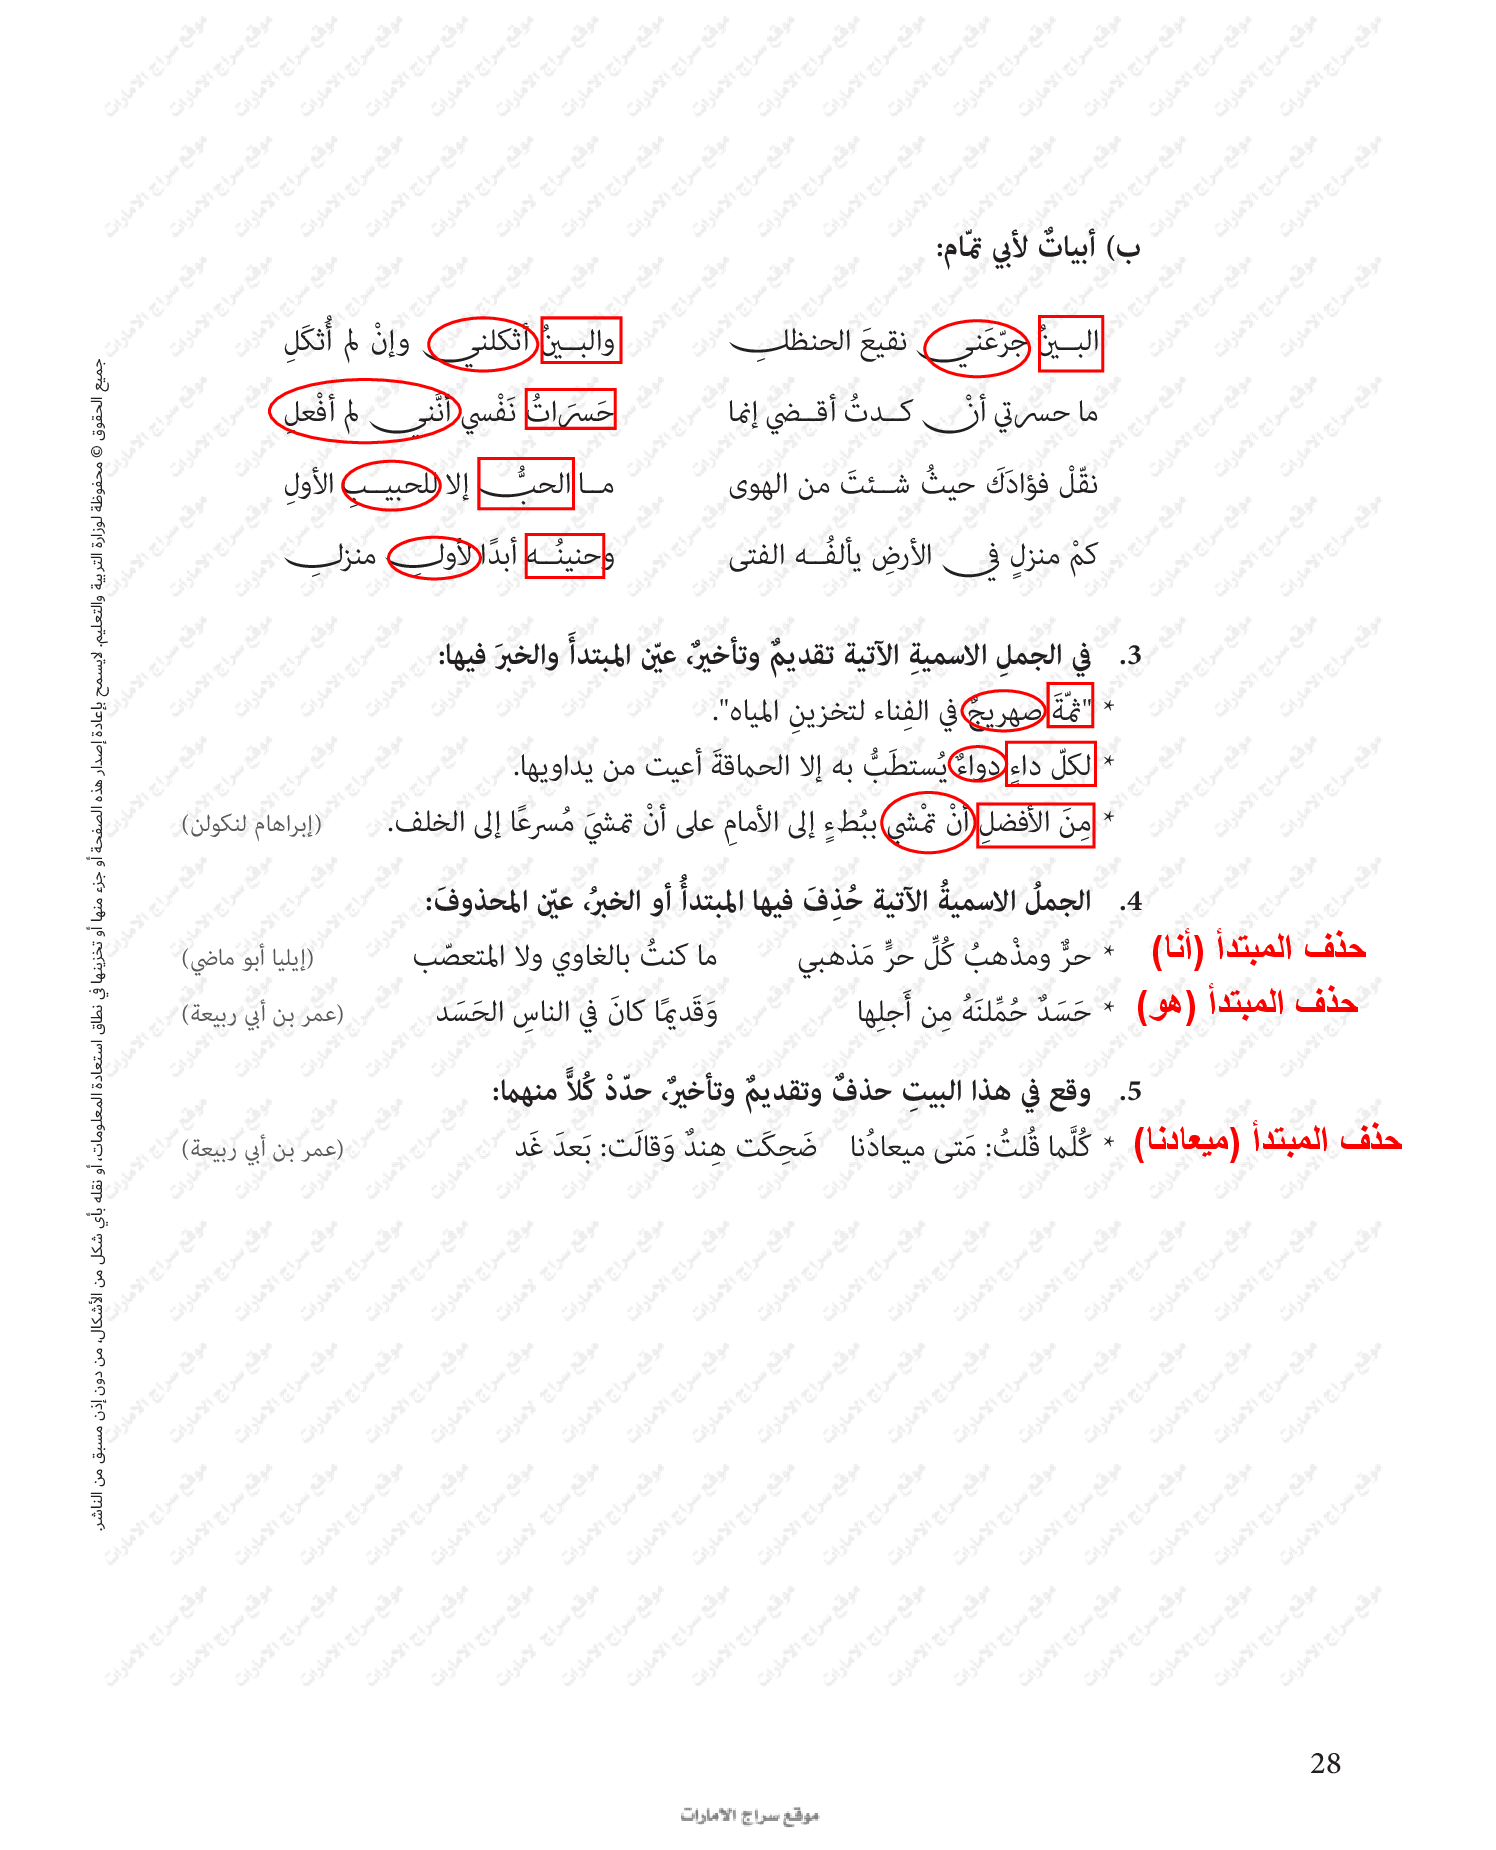 ب) أبياتٌ لأبي تمّام:
البينُ جرّعَني نقيعَ الحنظلِ والبينُ أثكلني وإنْ لم أُثكَلِ
ما حسرتي أنْ كدتُ أقضي إنما حَسَرَاتُ نَفْسي أنَّني لم أفْعلِ
نقّلْ فؤادَكَ حيثُ شئتَ من الهوى ما الحبُّ إلا للحبيبِ الأولِ
كمْ منزلٍ في الأرضِ يألفُه الفتى وحنينُه أبدًا لأولِ منزلِ
3. في الجملِ الاسميةِ الآتية تقديمٌ وتأخيرٌ، عيّن المبتدأَ والخبرَ فيها:
* "ثمّةَ صهريجٌ في الفِناء لتخزينِ المياه".
* لكلّ داءٍ دواءٌ يُستطَبُّ به إلا الحماقةَ أعيت من يداويها.
* مِنَ الأفضلِ أنْ تمْشي ببُطءٍ إلى الأمامِ على أنْ تمشيَ مُسرعًا إلى الخلف. (إبراهام لنكولن)
4. الجملُ الاسميةُ الآتية حُذِفَ فيها المبتدأُ أو الخبرُ، عيّن المحذوفَ:
حذف المبتدأ (أنا) * حرٌّ ومذْهبُ كُلِّ حرٍّ مَذهبي ما كنتُ بالغاوي ولا المتعصّب (إيليا أبو ماضي)
حذف المبتدأ (هو) * حَسَدٌ حُمِّلنَهُ مِن أَجلِها وَقَديمًا كانَ في الناسِ الحَسَد (عمر بن أبي ربيعة)
5. وقع في هذا البيتِ حذفٌ وتقديمٌ وتأخيرٌ، حدّدْ كُلاًّ منهما:
حذف المبتدأ (ميعادنا) * كُلَّما قُلتُ: مَتى ميعادُنا ضَحِكَت هِندٌ وَقالَت: بَعدَ غَد (عمر بن أبي ربيعة)
جميع الحقوق © محفوظة لوزارة التربية والتعليم. لايسمح بإعادة إصدار هذه الصفحة أو جزء منها أو تخزينها في نطاق استعادة المعلومات، أو نقله بأي شكل من الأشكال، من دون إذن مسبق من الناشر.
28
موقع سراج الامارات